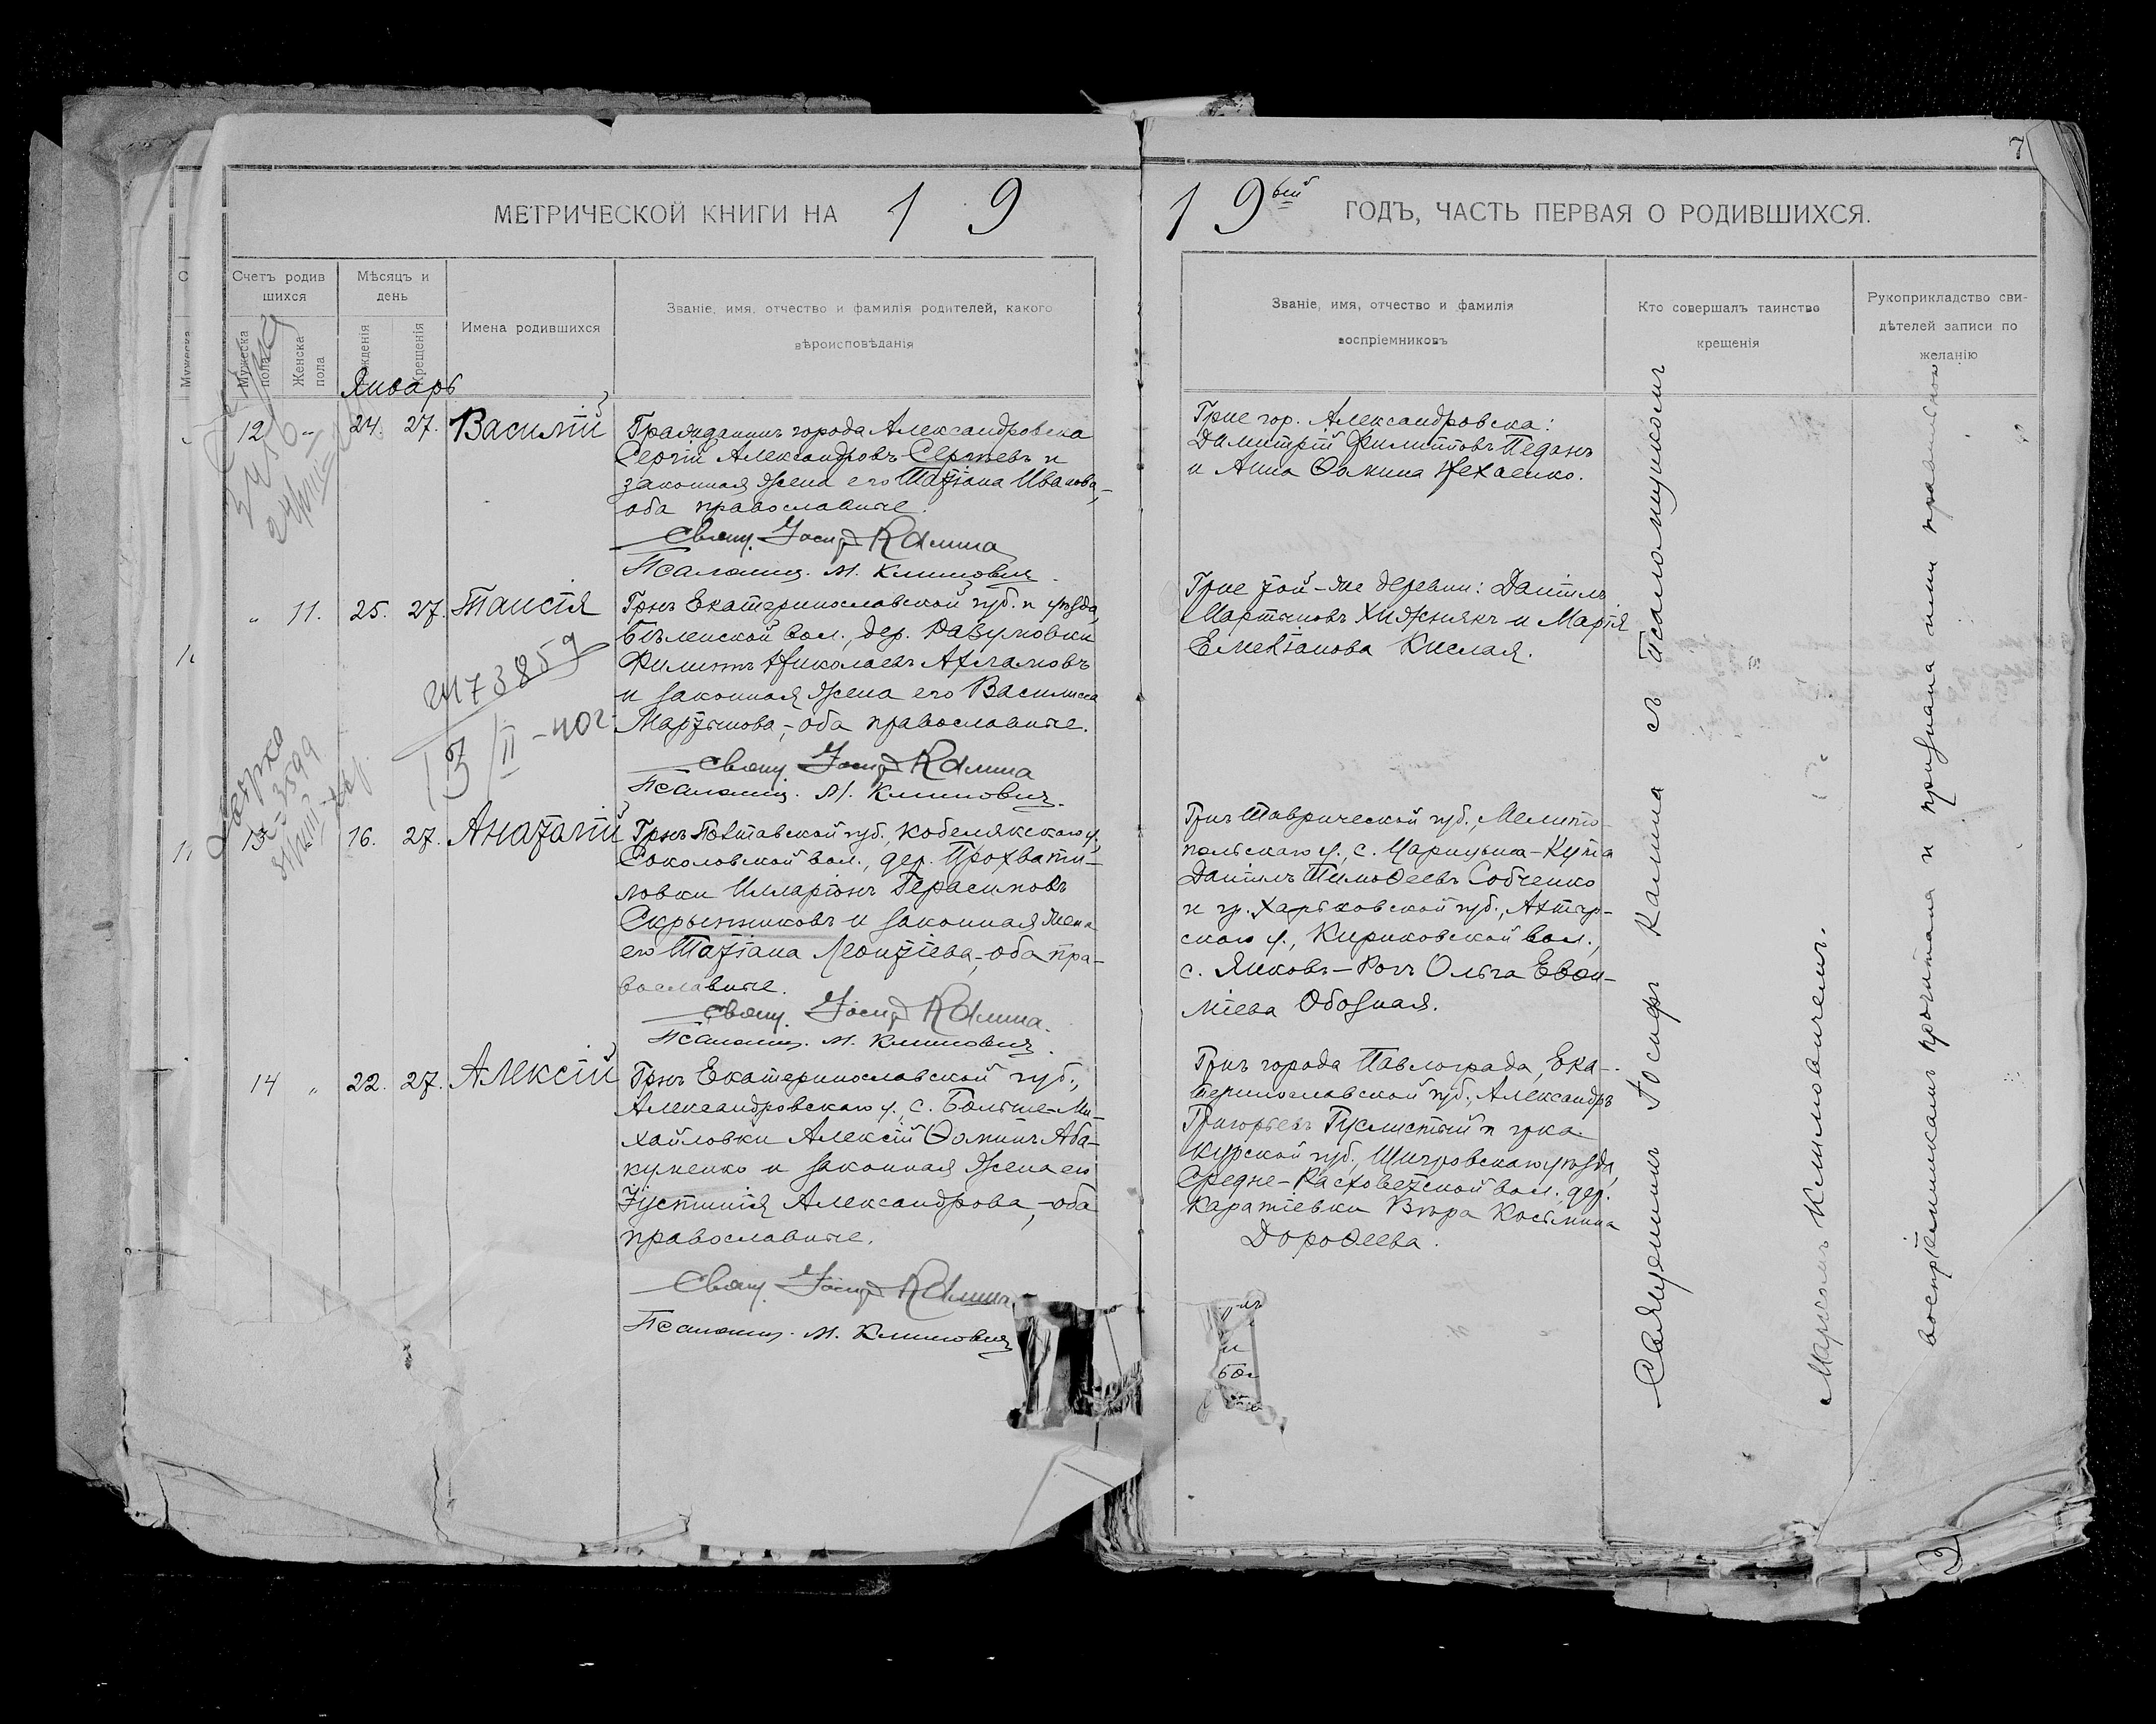 7
МЕТРИЧЕСКОЙ КНИГИ НА 1 9
1 9 ГОДЪ, ЧАСТЬ ПЕРВАЯ О РОДИВШИХСЯ.
Счетъ родив
шихся
Мужеска
пола
Женска
пола
Мѣсяцъ и
день
Рожденія
Крещенія
Имена родившихся
Званіе, имя, отчество и фамилія родителей, какого
вѣроисповѣданія
Званіе, имя, отчество и фамилія
воспріемниковъ
Кто совершалъ таинство
крещенія
Рукоприкладство сви-
дѣтелей записи по
желанію
Январь
12 „ 24. 27. Василій
Гражданинъ города Александровска
Сергій Александровъ Сергѣевъ и
законная жена его Татіана Иванова,-
оба православные.
Свящ. Іосифъ Калина
Псаломщ. М. Климовичъ.
Гр-не гор. Александровска:
Димитрій Филипповъ Педанъ
и Анна Ѳомина Нехаенко.
„ 11. 25. 27. Таисія
Гр-нъ Екатеринославской губ. и уѣзда,
Бѣленской вол., дер. Давумовки
Филиппъ Николаевъ Ахламовъ
и законная жена его Василисса
Мартинова,- оба православные.
Свящ. Іосифъ Калина
Псаломщ. М. Климовичъ.
Гр-не той-же деревни: Даніилъ
Мартиновъ Хижнякъ и Марія
Емеліанова Кислая.
2473859
13/II-40г.
13 „ 16. 27. Анатолій
Гр-нъ Полтавской губ., Кобелякскаго у.,
Соколовской вол., дер. Прохвати-
ловки Илларіонъ Герасимовъ
Скрынниковъ и законная жена
его Татіана Леонтіева,- оба пра-
вославные.
Свящ. Іосифъ Калина.
Псаломщ. М. Климовичъ.
Гр-нъ Таврической губ., Мелито-
польскаго у., с. Царицына-Кута
Даніилъ Тимоѳеевъ Собченко
и гр. Харьковской губ., Ахтыр-
скаго у., Кириковской вол.,
с. Янковъ-Рогъ Ольга Евѳи-
міева Обозная.
14 „ 22. 27. Алексій
Гр-нъ Екатеринославской губ.,
Александровскаго у., с. Больше-Ми-
хайловки Алексій Ѳоминъ Аба-
куменко и законная жена его
Іустинія Александрова,- оба
православные.
Свящ. Іосифъ Калина
Псаломщ. М. Климовичъ
Гр-нъ города Павлограда, Ека-
теринославской губ., Александръ
Григорьевъ Гуслистый и гр-ка
Курской губ., Щигровскаго уѣзда,
Средне-Расховецкой вол., дер.
Каратіевки Вѣра Косьмина
Дороѳеева.
Священникъ Іосифъ Калина съ Псаломщикомъ
Маркомъ Климовичемъ.
воспріемникамъ прочитана и признана ими правильною